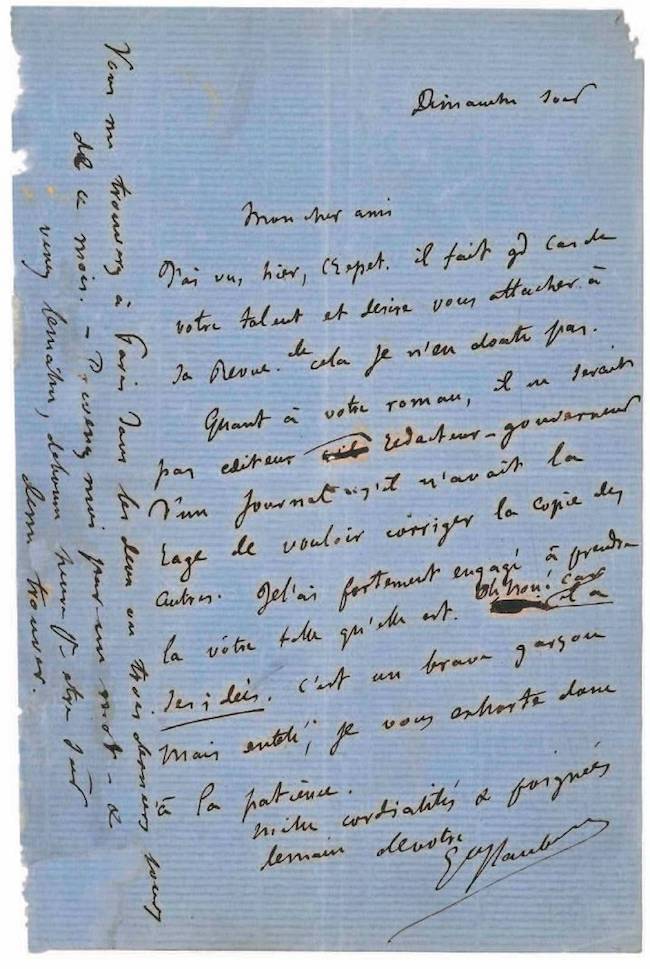 Dimanche soir
Mon cher ami
J'ai vu, hier, Crepet. il fait gd cas de
votre talent et desire vous attacher à
sa Revue. de cela je n'en doute pas.
Quant à votre roman, il ne serait
pas editeur redacteur-gouverneur
d'un journal s'il n'avait la
rage de vouloir corriger la copie des
autres. Je l'ai fortement engagé à prendre
la vôtre telle qu'elle est. Oh non! car
il a
ses idées. C'est un brave garçon
mais entêté, je vous exhorte donc
à la patience.
mille cordialités & poignées
de main devotre
Gve Flaubert
Vous me trouverez à Paris dans les deux ou trois derniers jours
de ce mois. – Prevenez moi par un mot – &
venez le matin, de bonne heure pr être sûr
de me trouver.